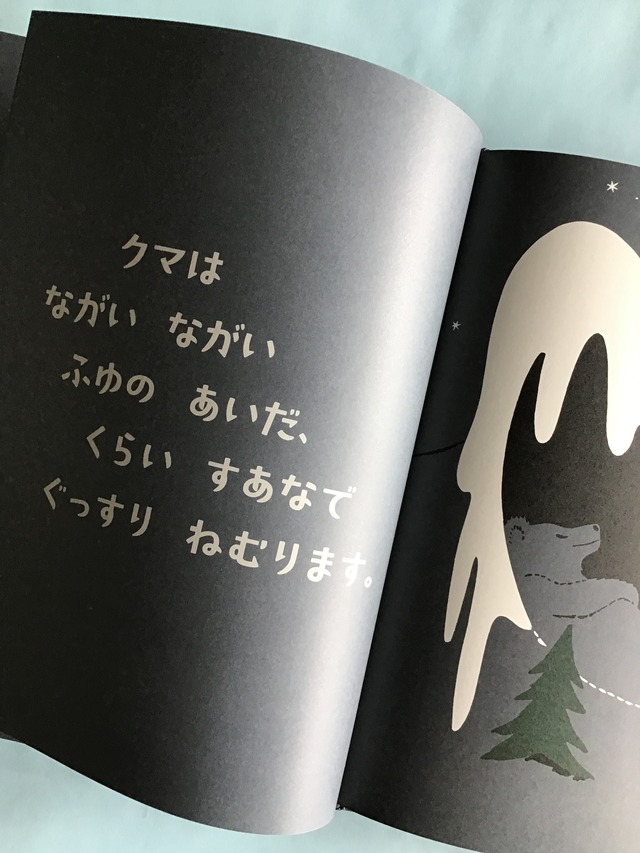 クマは
ながい ながい
ふゆの あいだ、
くらい すあなで
ぐっすり ねむります。